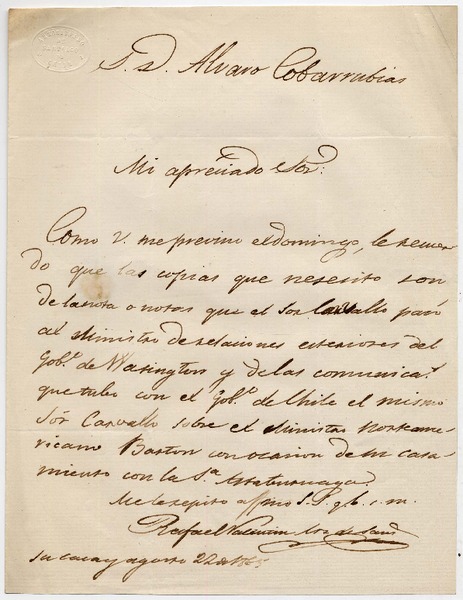 S. D. Alvaro Cobarrubias
Mi apreciado Sor:
Como V. me previno el domingo, le recuer
do que las copias que nesesito son
de la nota o notas que el Sor Carvallo pasó
al Ministro de relaciones esteriores del
Gob.o de Wasington y de las comunicas.
que tubo con el Gob.o de Chile el mismo
Sór Carvallo sobre el Ministro Norteame
ricano Barton con ocacion de su casa
miento con la Sa. Astaburuaga.
Me le repito affmo S. S. q. b. s. m.
Rafael Valentin
su casa y agosto 22 de 1865